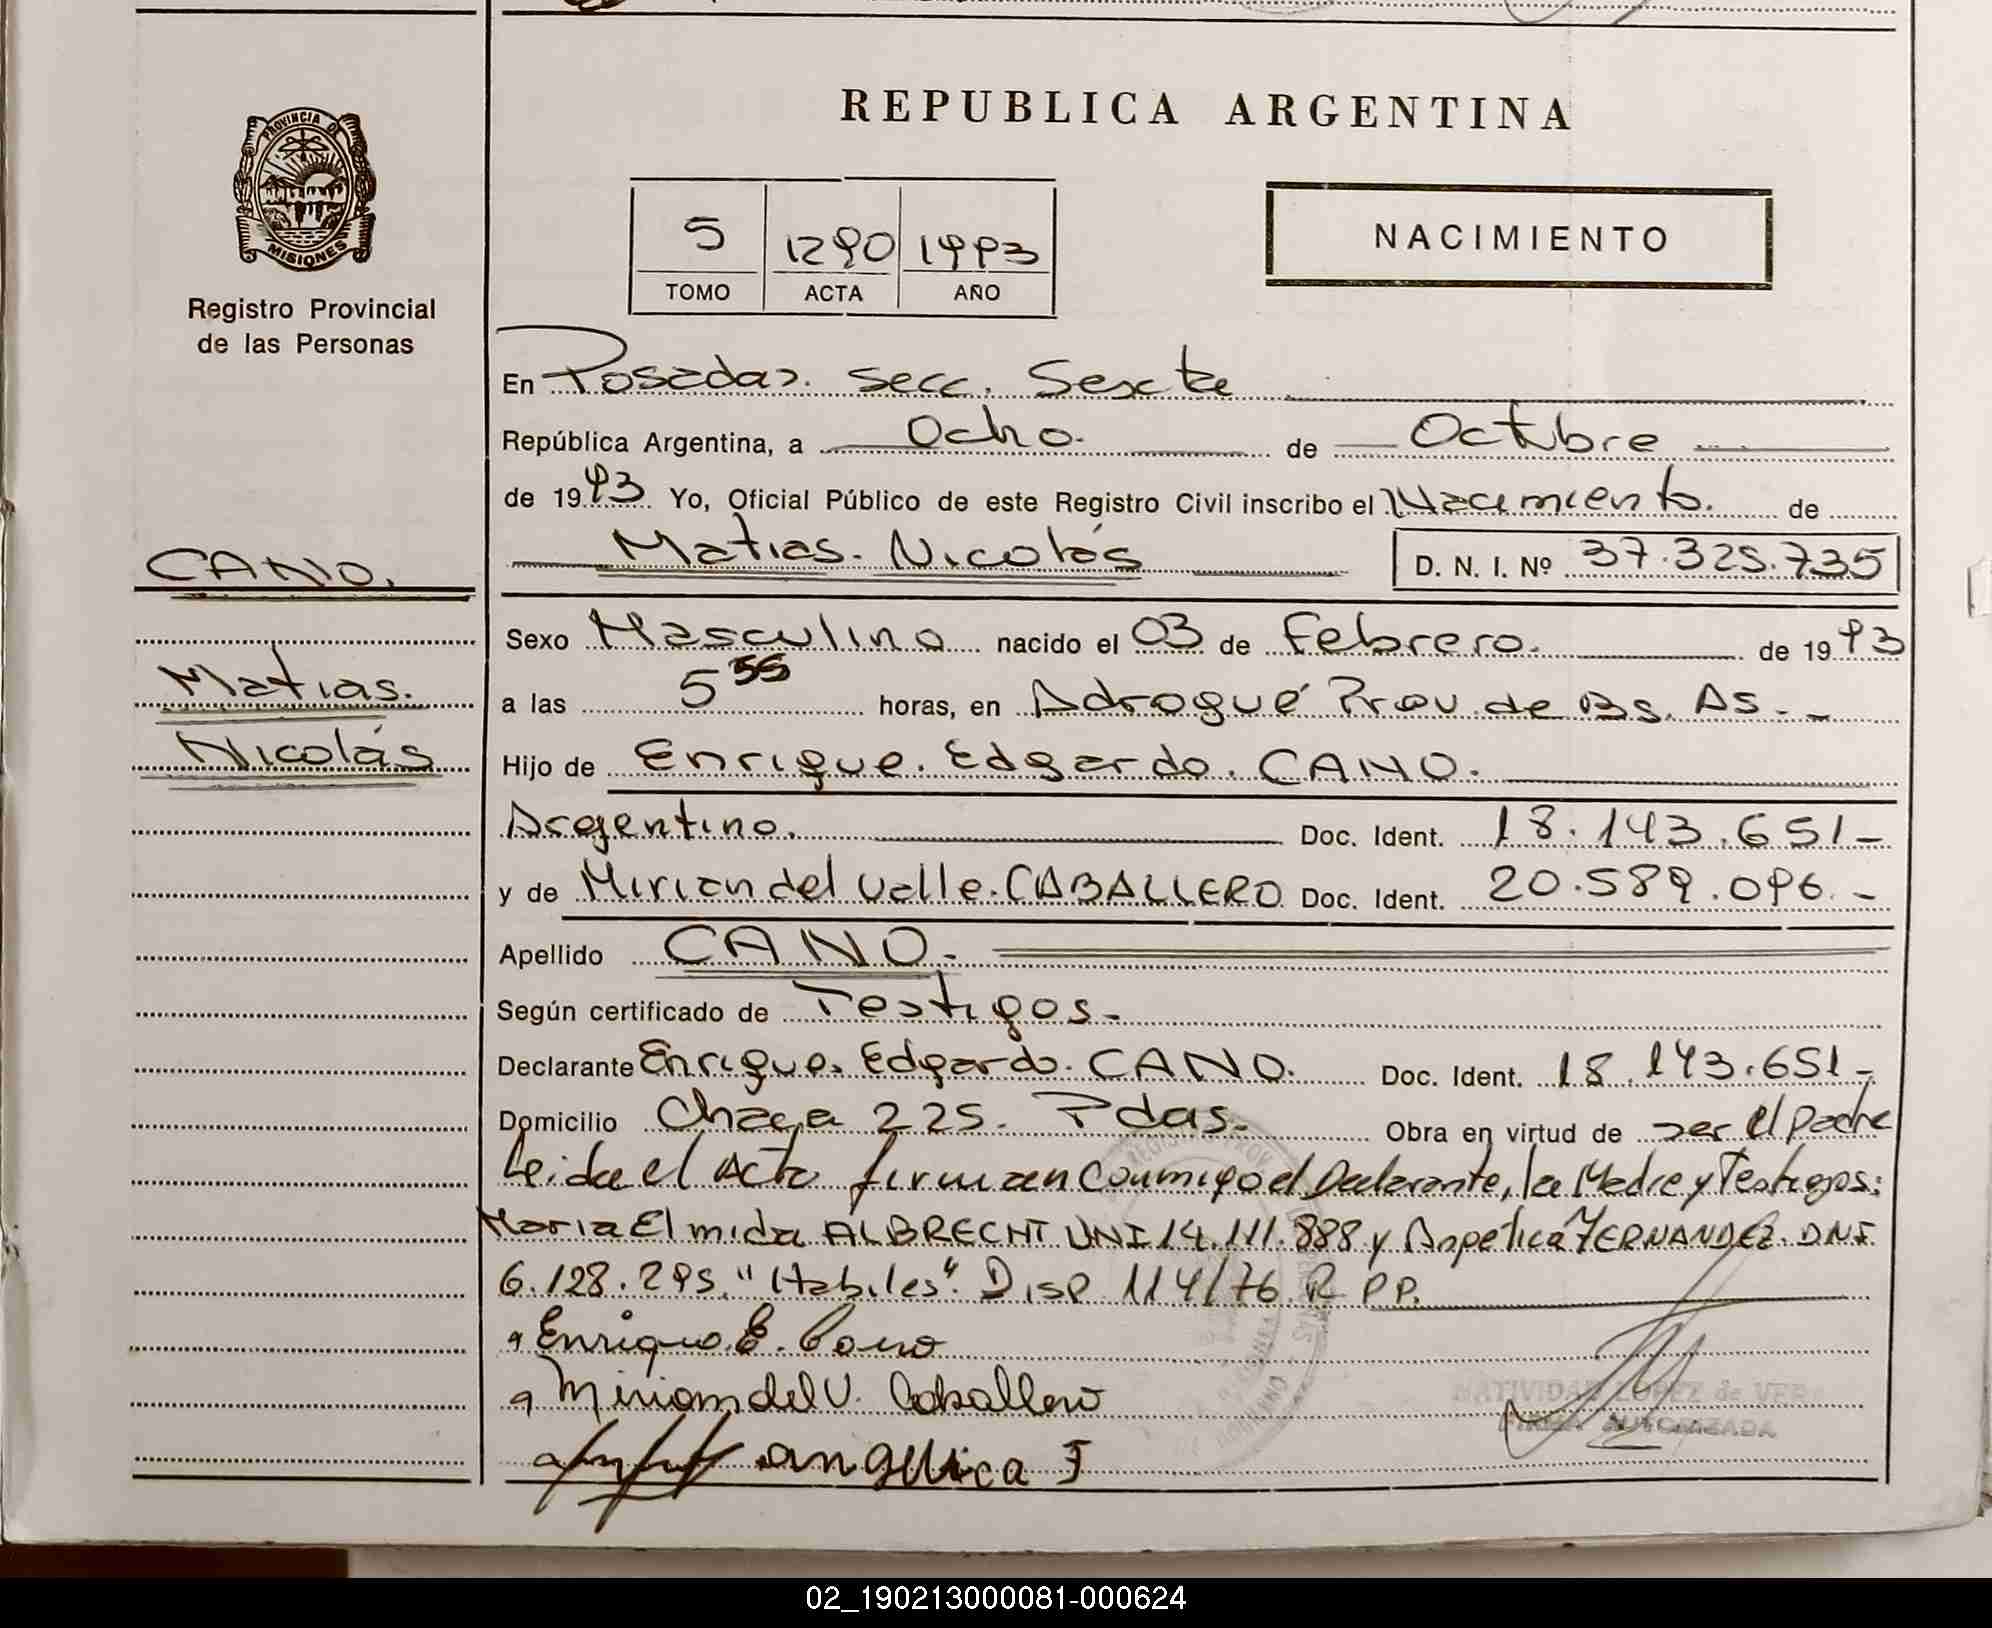 REPUBLICA ARGENTINA
PROVINCIA DE
MISIONES
Registro Provincial
de las Personas
5 1290 1993
TOMO ACTA AÑO
NACIMIENTO
En Posadas. Secc. Sexta
República Argentina, a Ocho. de Octubre
de 1993 Yo, Oficial Público de este Registro Civil inscribo el Nacimiento. de
Matias. Nicolás D. N. I. Nº 37.325.735
CANO.
Matias.
Nicolás
Sexo Masculino nacido el 03 de Febrero. de 1993
a las 5 55 horas, en Adrogué Prov. de Bs. As. -
Hijo de Enrique. Edgardo. CANO.
Argentino. Doc. Ident. 18.143.651-
y de Mirian del Valle. CABALLERO Doc. Ident. 20.589.096.-
Apellido CANO.-
Según certificado de Testigos.-
Declarante Enrique. Edgardo. CANO. Doc. Ident. 18.143.651-
Domicilio Chaca 225. Pdas. Obra en virtud de ser el padre
Leida el Acta firman conmigo el Declarante, la Madre y Testigos:
Maria Elmida ALBRECHT DNI 14.111.888 y Angélica FERNANDEZ. DNI
6.128.295. "Habiles". Disp 114/76 R.P.P.
Enrique E. Cano
Miriam del V. Caballero
Angelica F
NATIVIDAD LOPEZ de VERA
FIRMA AUTORIZADA
02_190213000081-000624